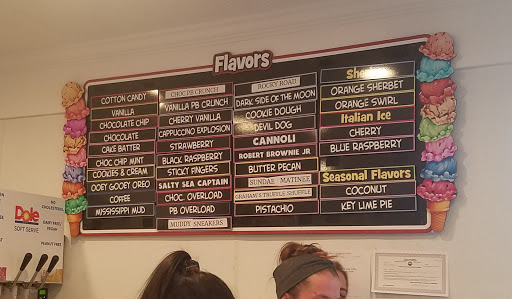 Flavors
COTTON CANDY
VANILLA
CHOCOLATE CHIP
CHOCOLATE
CAKE BATTER
CHOC CHIP MINT
COOKIES & CREAM
OOEY GOOEY OREO
COFFEE
MISSISSIPPI MUD
CHOC PB CRUNCH
VANILLA PB CRUNCH
CHERRY VANILLA
CAPPUCCINO EXPLOSION
STRAWBERRY
BLACK RASPBERRY
STICKY FINGERS
SALTY SEA CAPTAIN
CHOC. OVERLOAD
PB OVERLOAD
MUDDY SNEAKERS
ROCKY ROAD
DARK SIDE OF THE MOON
COOKIE DOUGH
DEVIL DOG
CANNOLI
ROBERT BROWNIE JR
BUTTER PECAN
SUNDAE MATINEE
GRAHAM'S TRUFFLE SHUFFLE
PISTACHIO
ORANGE SHERBET
ORANGE SWIRL
Italian Ice
CHERRY
BLUE RASPBERRY
Seasonal Flavors
COCONUT
KEY LIME PIE
Dole
SOFT SERVE
NO CHOLESTEROL
DAIRY FREE/
VEGAN
PEANUT FREE